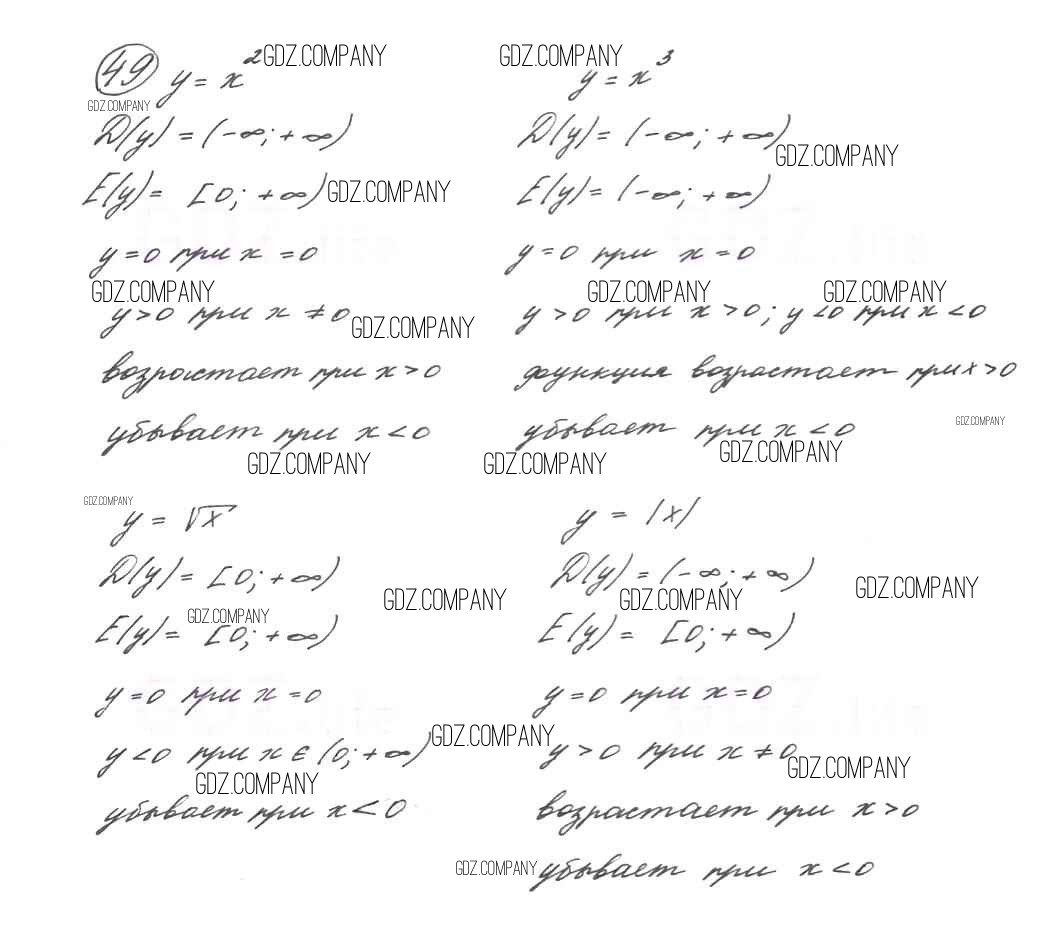 49 y = x² GDZ.COMPANY
GDZ.COMPANY
D(y) = (-∞; +∞)
E(y) = [0; +∞) GDZ.COMPANY
y = 0 при x = 0
GDZ.COMPANY
y > 0 при x ≠ 0 GDZ.COMPANY
возрастает при x > 0
убывает при x < 0
GDZ.COMPANY
GDZ.COMPANY y = x³
D(y) = (-∞; +∞)
GDZ.COMPANY
E(y) = (-∞; +∞)
y = 0 при x = 0
GDZ.COMPANY GDZ.COMPANY
y > 0 при x > 0; y < 0 при x < 0
функция возрастает при x > 0
GDZ.COMPANY
убывает при x < 0
GDZ.COMPANY GDZ.COMPANY
GDZ.COMPANY
y = √x
D(y) = [0; +∞)
GDZ.COMPANY
GDZ.COMPANY
E(y) = [0; +∞)
y = 0 при x = 0
y < 0 при x ∈ (0; +∞) GDZ.COMPANY
GDZ.COMPANY
убывает при x < 0
y = |x|
D(y) = (-∞; +∞)
GDZ.COMPANY GDZ.COMPANY
E(y) = [0; +∞)
y = 0 при x = 0
y > 0 при x ≠ 0
GDZ.COMPANY
возрастает при x > 0
GDZ.COMPANY убывает при x < 0